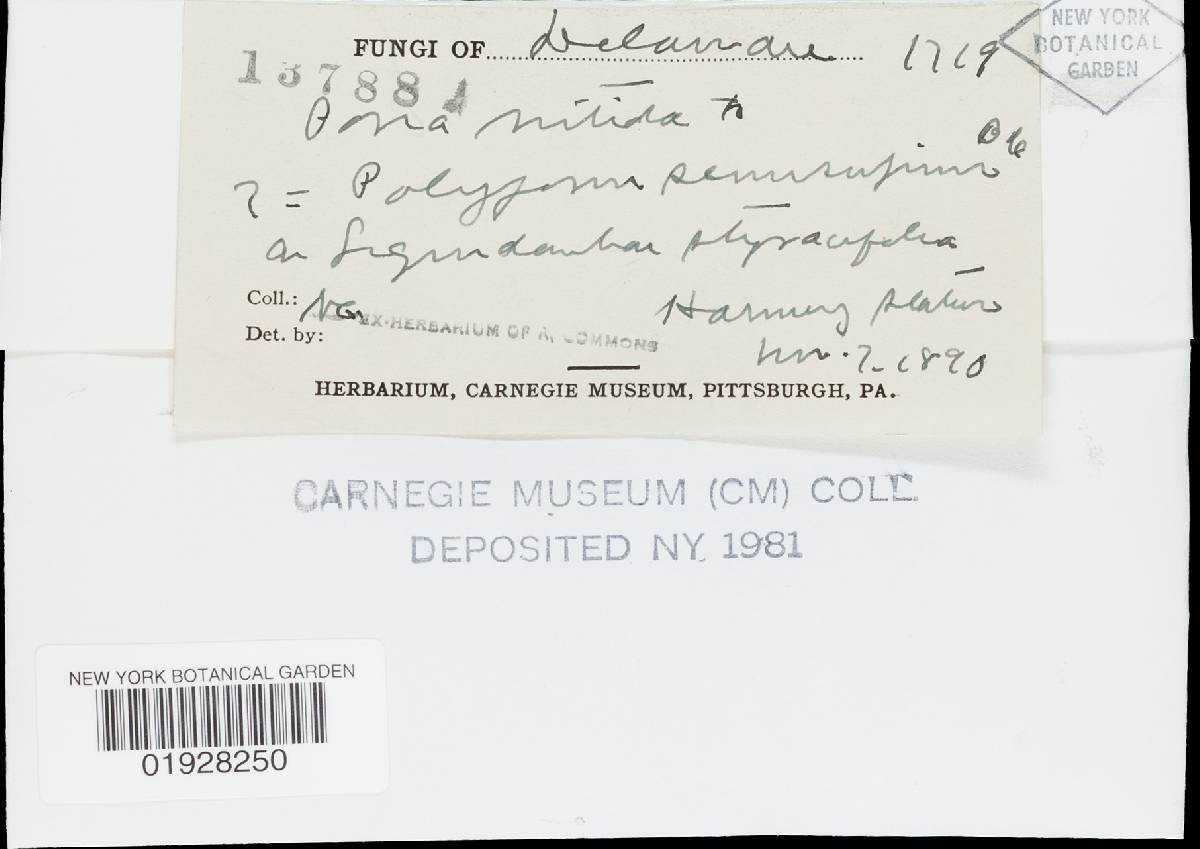 FUNGI OF Delaware 1719
NEW YORK
BOTANICAL
GARDEN
13788
Poria nitida
? = Polyporus semisupinus B&C
on Liquidambar styraciflua
Coll.:
EX-HERBARIUM OF A. COMMONS
Det. by:
Nov. 7. 1890
HERBARIUM, CARNEGIE MUSEUM, PITTSBURGH, PA.
CARNEGIE MUSEUM (CM) COLL.
DEPOSITED NY 1981
NEW YORK BOTANICAL GARDEN
01928250